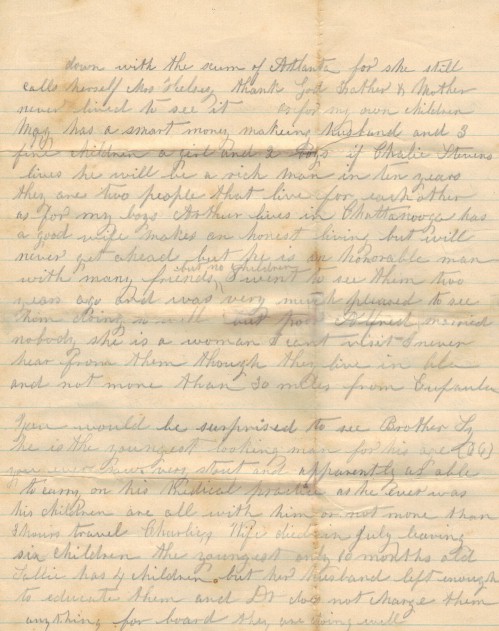 down with the scum of Atlanta for she still
calls herself Mrs thank God Father & Mother
never lived to see it as for my own children
May has a smart money makeing Husband and 3
fine children a girl and 2 Boys if Charlie Stevens
lives he will be a rich man in ten years
they are two people that live for each other
as for my boys Arthur lives in Chattanooga has
a good wife makes an honest living but will
never get ahead but he is an honorable man
but no children
with many friends I went to see them two
years ago and was very much pleased to see
them doing well but poor Alfred married
nobody she is a woman I cant visit I never
hear from them though they live in Ala
and not more than 30 miles from Eufaula
You would be surprised to see Brother Ly
he is the youngest looking man for his age (66)
you ever saw very stout and apparently as able
to carry on his Medical practice as he ever was
his children are all with him or not more than
2 hours travel Charlies Wife died in July leaving
six children the youngest only 10 months old
Tallie has 4 children but her husband left enough
to educate them and Dr does not charge them
anything for board they are doing well